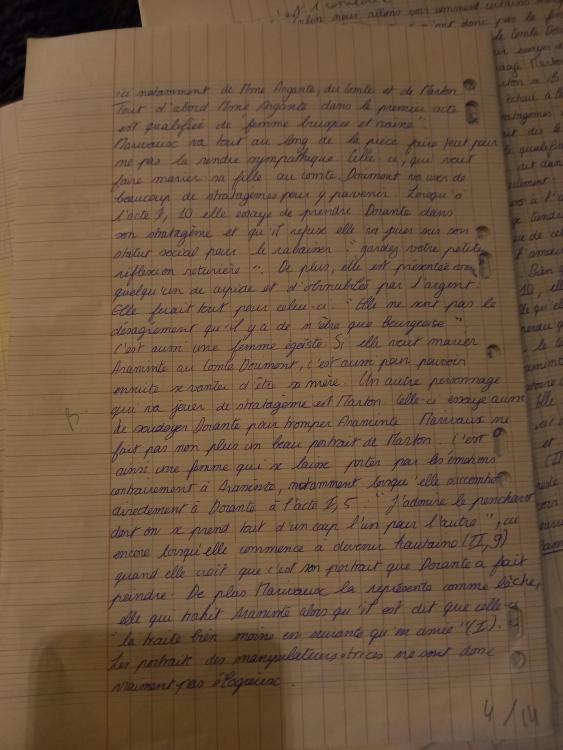 ici notamment de Mme Argante, du Comte et de Marton.
Tout d'abord Mme Argante dans le premier acte
est qualifiée de "femme brusque et vaine".
Marivaux va tout au long de la pièce faire tout pour
ne pas la rendre sympathique. Celle-ci, qui veut
faire marier sa fille au comte Dorimont va user de
beaucoup de stratagèmes pour y parvenir. Lorsqu'à
l'acte I, 10 elle essaye de prendre Dorante dans
son stratagème et qu'il refuse elle va jouer sur son
statut social pour le rabaisser : "gardez votre petite
réflexion roturière". De plus, elle est présentée comme
quelqu'un de cupide et d'obnubilée par l'argent.
Elle ferait tout pour celui-ci. "Elle ne sent pas le
désagrément qu'il y a de n'être que bourgeoise".
C'est aussi une femme égoïste. Si elle veut marier
Araminte au Comte Dorimont, c'est aussi pour pouvoir
ensuite se vanter d'être sa mère. Un autre personnage
qui va jouer de stratagème est Marton. Celle-ci essaye aussi
de soudoyer Dorante pour tromper Araminte. Marivaux ne
fait pas non plus un beau portrait de Marton. C'est
ainsi une femme qui se laisse porter par les émotions
contrairement à Araminte, notamment lorsqu'elle succombe
directement à Dorante à l'acte I, 5. "J'admire le penchant
dont on se prend tout d'un coup l'un pour l'autre", ou
encore lorsqu'elle commence à devenir hautaine (II, 9)
quand elle croit que c'est son portrait que Dorante a fait
peindre. De plus Marivaux la représente comme lâche,
elle qui trahit Araminte alors qu'il est dit que celle-ci
"la traite bien moins en suivante qu'en amie" (I).
Les portrait des manipulateurs.trices ne sont donc
vraiment pas élogieux.
4/14